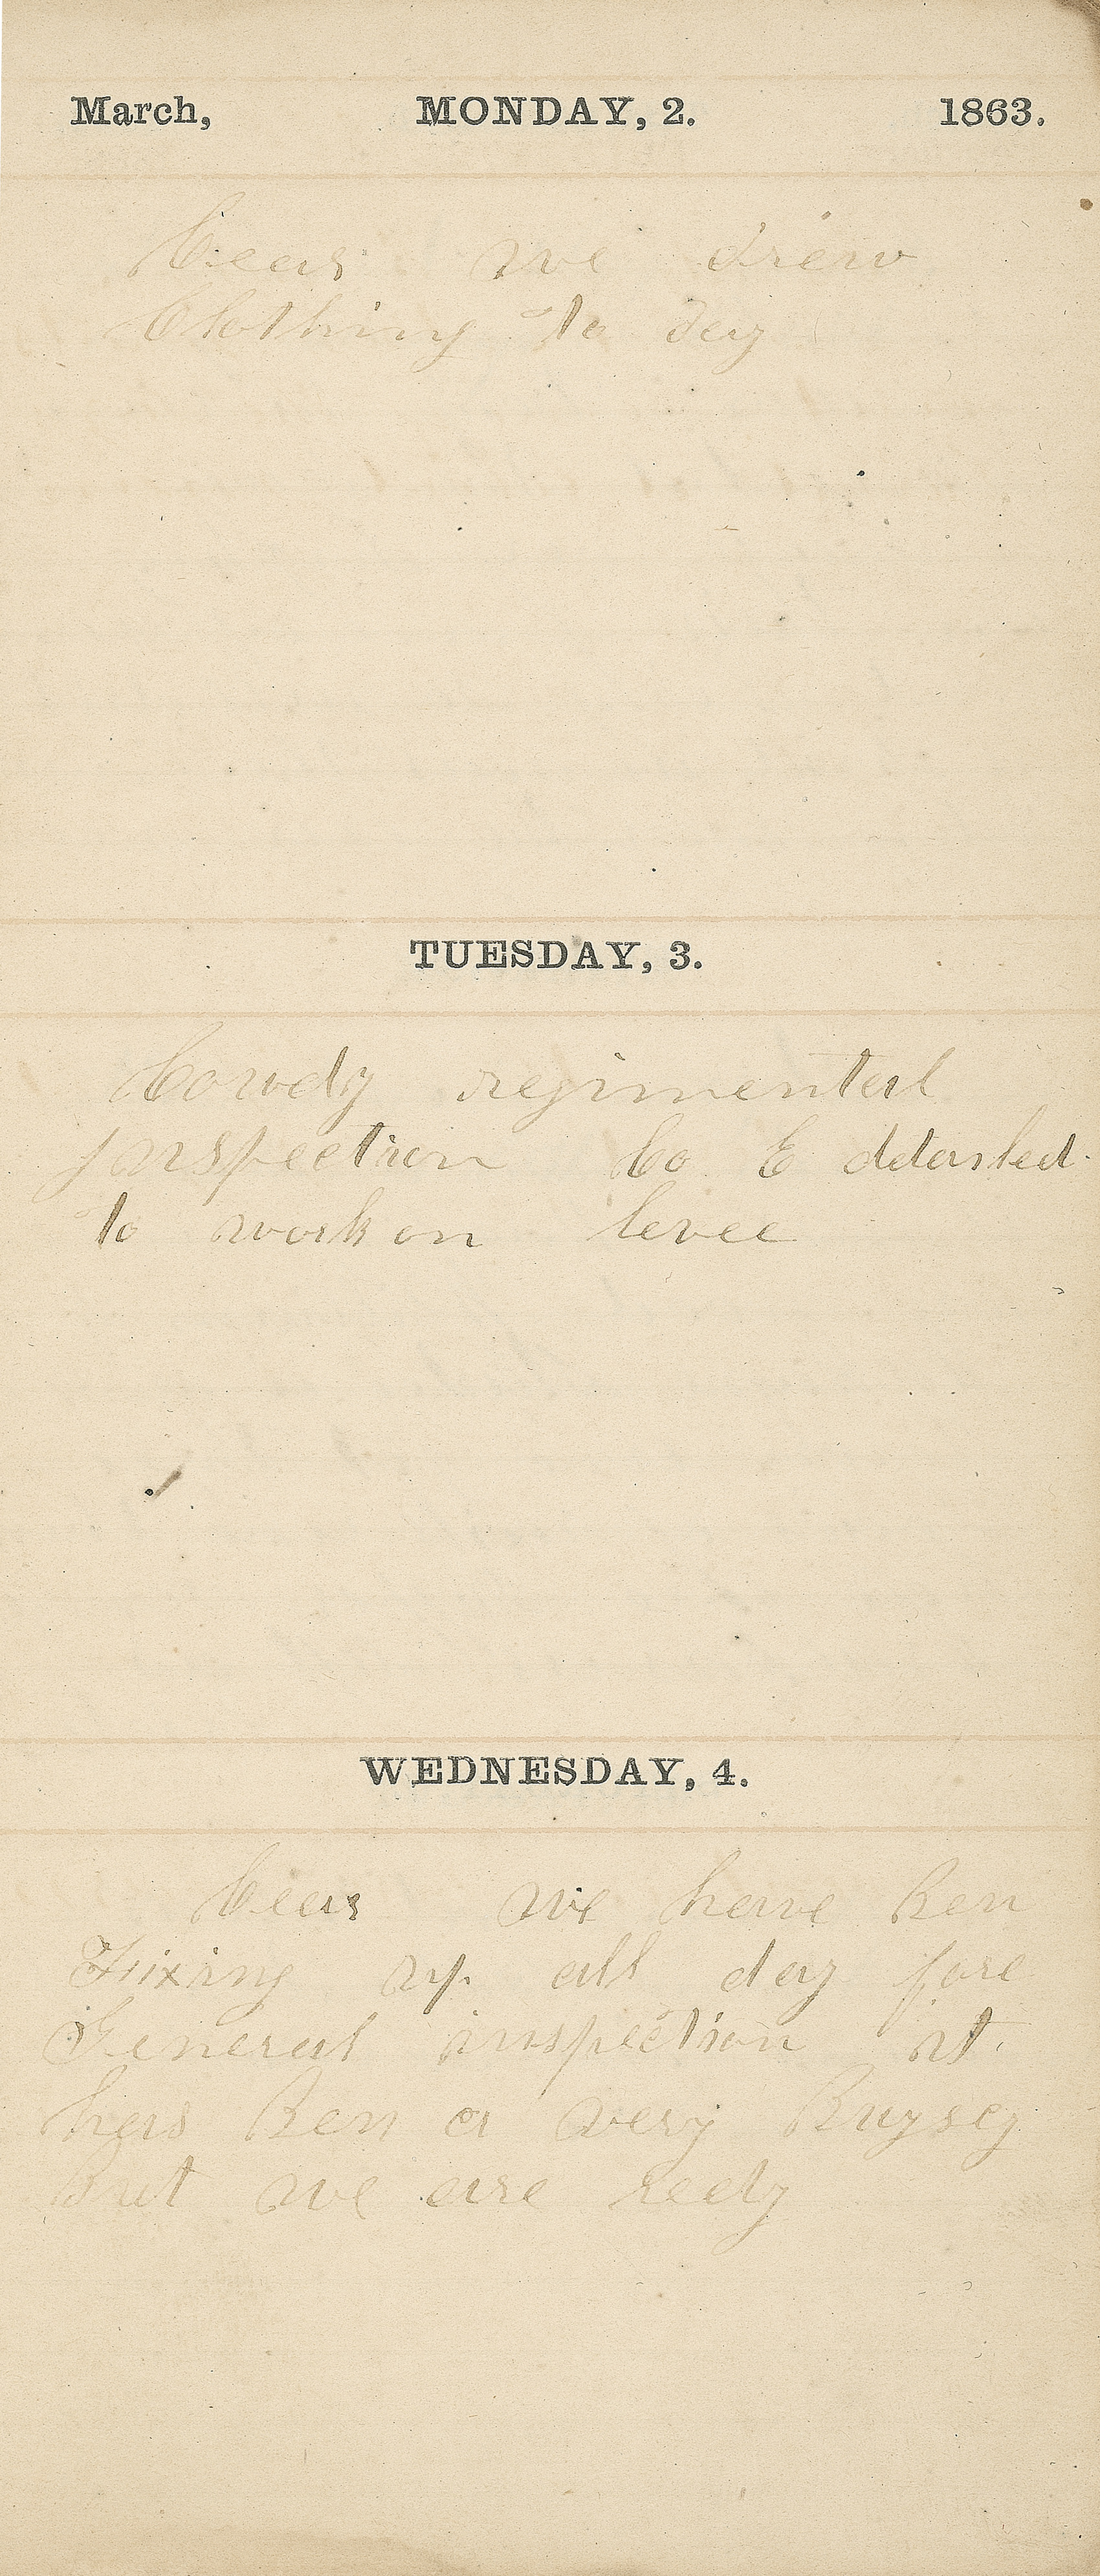 March, MONDAY, 2. 1863.
Clear we drew
Clothing to day
TUESDAY, 3.
Cowdy regimental
Inspection Co E detashed
to work on levee
WEDNESDAY, 4.
Clear We have Ben
Fixing up all day fore
General inspection it
has Ben a very Buysey
But we are redy